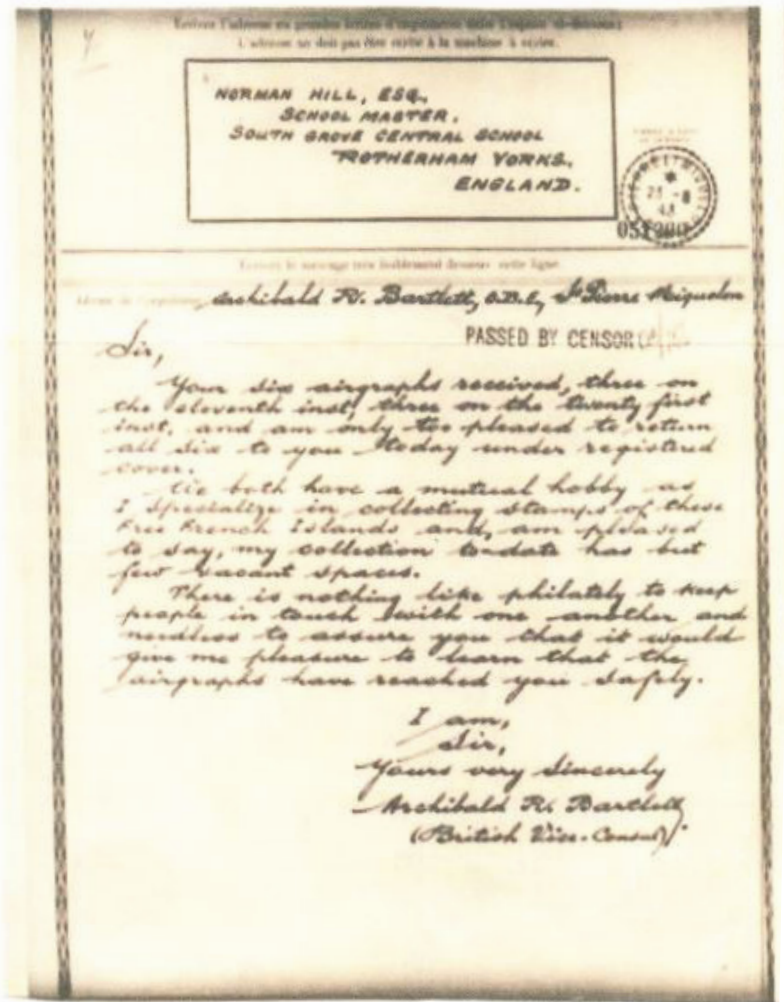 Ecrivez l'adresse en grandes lettres d'imprimerie dans l'espace ci-dessous;
L'adresse ne doit pas être écrite à la machine à écrire.
NORMAN HILL, ESQ.,
SCHOOL MASTER,
SOUTH GROVE CENTRAL SCHOOL
ROTHERHAM YORKS.,
ENGLAND.
43
051200
Ecrivez le message très lisiblement dessous cette ligne.
Archibald R. Bartlett, O.B.E, St Pierre Miquelon
PASSED BY CENSOR
Sir,
Your six airgraphs received, three on
the eleventh inst, three on the twenty first
inst, and am only too pleased to return
all six to you today under registered
cover.
We both have a mutual hobby as
I specialize in collecting stamps of these
Free French Islands and, am pleased
to say, my collection to-date has but
few vacant spaces.
There is nothing like philately to keep
people in touch with one another and
needless to assure you that it would
give me pleasure to learn that the
airgraphs have reached you safely.
I am,
Sir,
Yours very Sincerely
Archibald R. Bartlett
(British Vice-Consul).